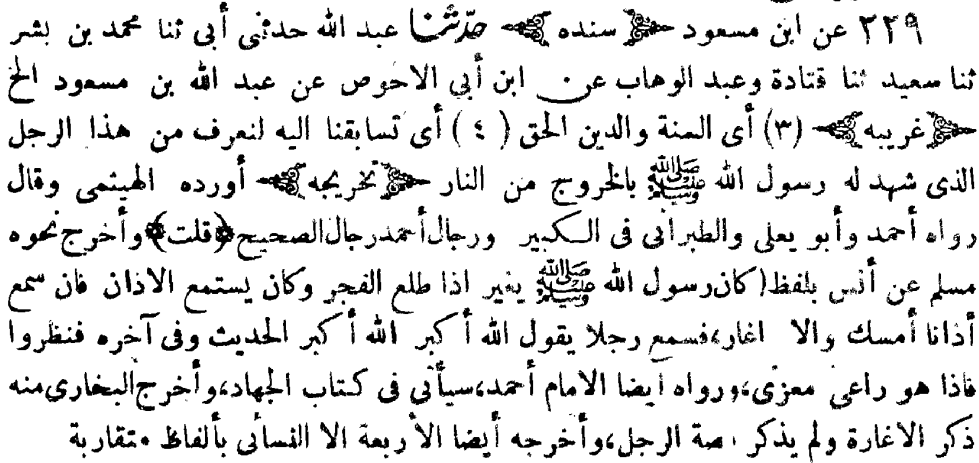 ٢٢٩ عن ابن مسعود ﴿ سنده ﴾ حدثنا عبد الله حدثنى أبى ثنا محمد بن بشر
ثنا سعيد ثنا قتادة وعبد الوهاب عن ابن أبي الاحوص عن عبد الله بن مسعود الخ
﴿ غريبه ﴾ (٣) أى السنة والدين الحق ( ٤ ) أى تسابقنا اليه لنعرف من هذا الرجل
الذى شهد له رسول الله ﷺ بالخروج من النار ﴿ تخريجه ﴾ أورده الهيثمى وقال
رواه أحمد وأبو يعلى والطبرانى فى الكبير ورجال أحمد رجال الصحيح ﴿ قلت ﴾ وأخرج نحوه
مسلم عن أنس بلفظ (كان رسول الله ﷺ يغير اذا طلع الفجر وكان يستمع الاذان فان سمع
أذانا أمسك والا اغار، فسمع رجلا يقول الله أكبر الله أكبر الحديث وفى آخره فنظروا
فاذا هو راعى معزى، ورواه أيضا الامام أحمد، سيأتى فى كتاب الجهاد، وأخرج البخارى منه
ذكر الاغارة ولم يذكر قصة الرجل، وأخرجه أيضا الأربعة الا النسائى بألفاظ متقاربة